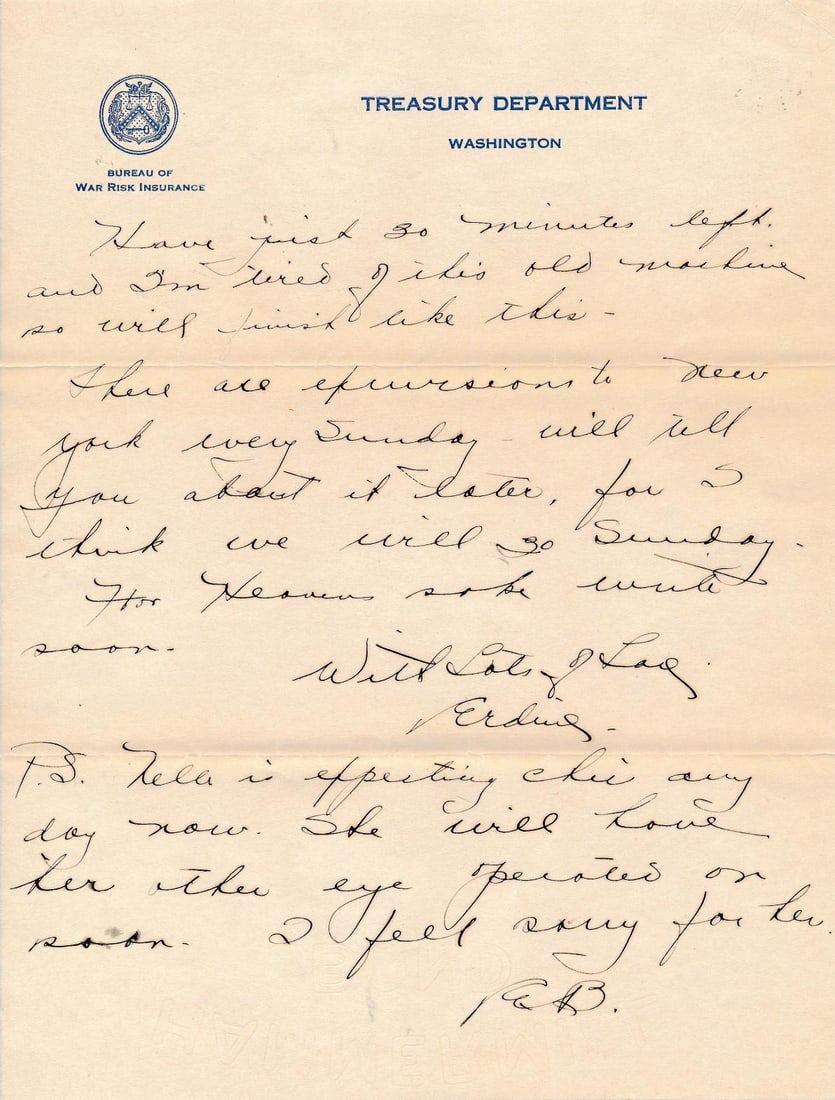 TREASURY DEPARTMENT
WASHINGTON
BUREAU OF
WAR RISK INSURANCE
Have just 30 minutes left.
and I'm tired of this old machine
so will finish like this -
There are excursions to New
York every Sunday - will tell
you about it later, for I
think we will go Sunday.
For Heavens sake write
soon.
With Lots of Love,
Erdine.
P.S. Nella is expecting any
day now. She will have
her other eye operated on
soon. I feel sorry for her.
E.B.